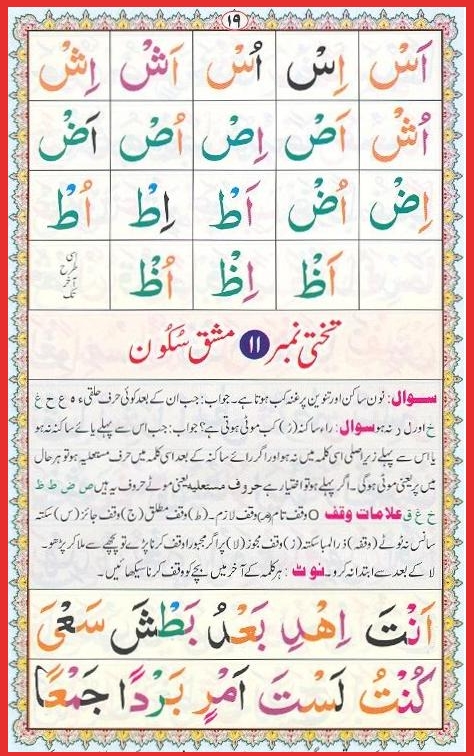 ١٩
اَسْ اِسْ اُسْ اَشْ اِشْ
اُشْ اَصْ اِصْ اُصْ اَضْ
اِضْ اُضْ اَطْ اِطْ اُطْ
اَظْ اِظْ اُظْ اسی طرح آخر تک
تختی نمبر ١١ مشق سُکُون
سوال: نون ساکن اور تنوین پر غنہ کب ہوتا ہے۔ جواب: جب ان کے بعد کوئی حرف حلقی ء ہ ع ح غ
خ اور ل ر نہ ہو سوال: راء ساکنہ (رْ) کب موٹی ہوتی ہے؟ جواب: جب اس سے پہلے یائے ساکنہ نہ ہو
یا اس سے پہلے زیر اصلی اسی کلمہ میں نہ ہو اور اگر رائے ساکنہ کے بعد اسی کلمہ میں حرف مستعلیہ ہو تو ہر حال
میں پر یعنی موٹی ہوگی۔ اگر پہلے ہو تو اختیار ہے حروف مستعلیہ یعنی موٹے حروف یہ ہیں ص ض ط ظ
خ غ ق علامات وقف O وقف تام (م) وقف لازم۔ (ط) وقف مطلق (ج) وقف جائز (س) سکتہ
سانس نہ ٹوٹے (وقفہ) ذرا لمبا سکتہ (ز) وقف مجوز (لا) پر اگر مجبورا وقف کرنا پڑے تو پیچھے سے ملا کر پڑھو۔
لا کے بعد سے ابتدا نہ کرو۔ نوٹ: ہر کلمہ کے آخر میں بچے کو وقف کرنا سیکھائیں۔
اَنْتَ اِهْدِ بَعْدُ بَطْشَ سَعْیَ
كُنْتُ لَسْتَ اَمْرٍ بَرْدًا جَمْعًا